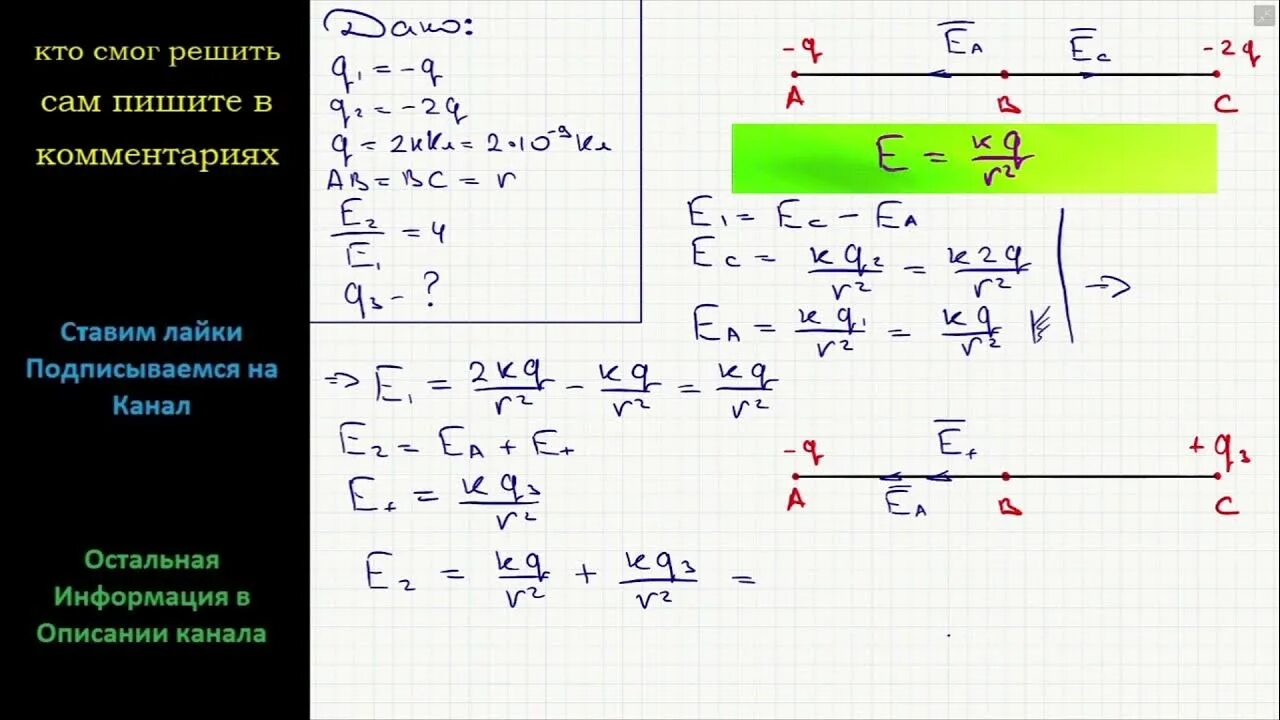 кто смог решить
сам пишите в
комментариях
Ставим лайки
Подписываемся на
Канал
Остальная
Информация в
Описании канала
Дано:
q₁ = -q
q₂ = -2q
q = 2нКл = 2·10⁻⁹Кл
AB = BC = r
E₂/E₁ = 4
q₃ - ?
-q E̅A E̅c -2q
A B C
E = кq/r²
E₁ = Ec - EA
Ec = кq₂/r² = к2q/r²
EA = кq₁/r² = кq/r²
=>
=> E₁ = 2кq/r² - кq/r² = кq/r²
E₂ = EA + E₊
E₊ = кq₃/r²
-q E̅₊ +q₃
A E̅A B C
E₂ = кq/r² + кq₃/r² =